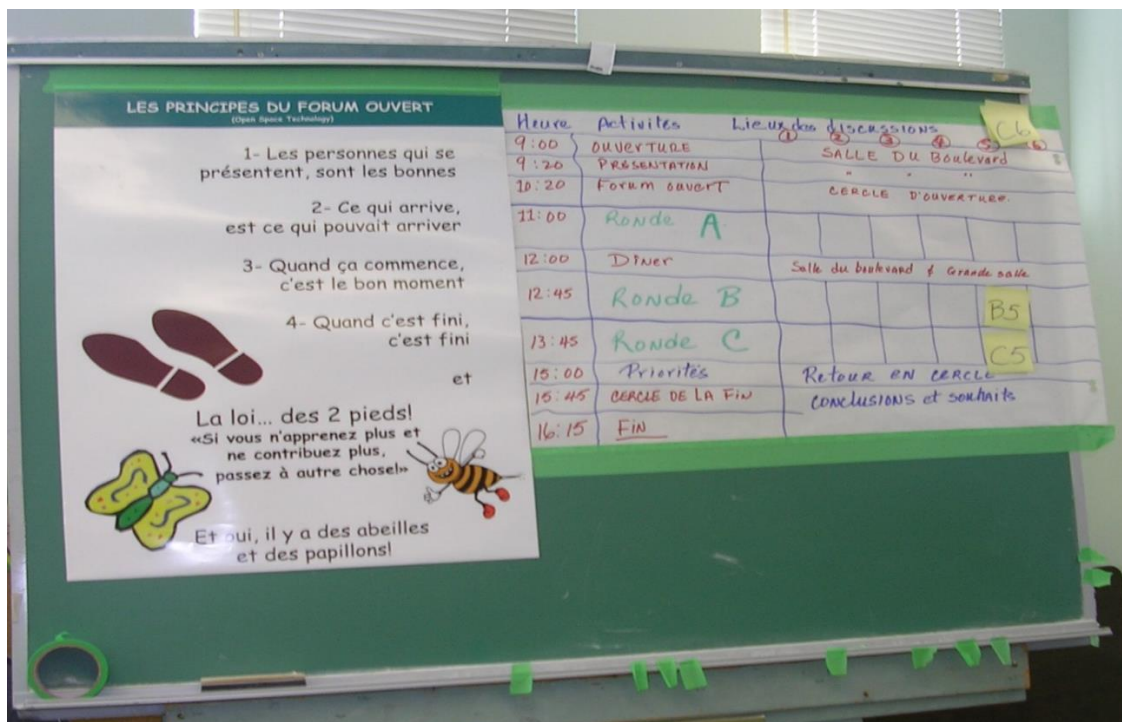 LES PRINCIPES DU FORUM OUVERT
(Open Space Technology)
1- Les personnes qui se
présentent, sont les bonnes
2- Ce qui arrive,
est ce qui pouvait arriver
3- Quand ça commence,
c'est le bon moment
4- Quand c'est fini,
c'est fini
et
La loi... des 2 pieds!
«Si vous n'apprenez plus et
ne contribuez plus,
passez à autre chose!»
Et oui, il y a des abeilles
et des papillons!
Heure Activités Lieux des discussions C6
1 2 3 4 5 6
9:00 OUVERTURE SALLE DU Boulevard
9:20 PRÉSENTATION " " "
10:20 Forum ouvert CERCLE D'OUVERTURE.
11:00 Ronde A
12:00 Dîner Salle du boulevard & Grande salle
12:45 Ronde B B5
13:45 Ronde C C5
15:00 Priorités Retour EN CERCLE
15:45 CERCLE DE LA FIN CONCLUSIONS et souhaits
16:15 FIN